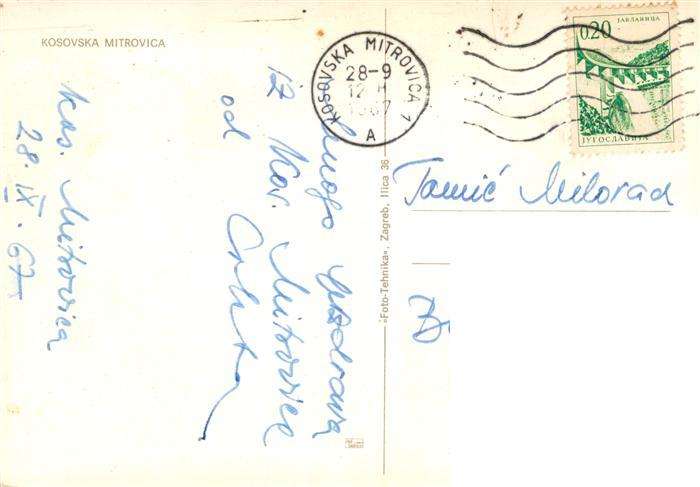 KOSOVSKA MITROVICA
Kos. Mitrovica
28. IX. 67
Mnogo pozdrava
iz Kos. Mitrovice
od
»Foto-Tehnika«, Zagreb, Ilica 36
KOSOVSKA MITROVICA 1
28-9
12
1967
A
0,20
ЈАБЛАНИЦА
JYГОСЛАВИЈА
Tomić Milorad